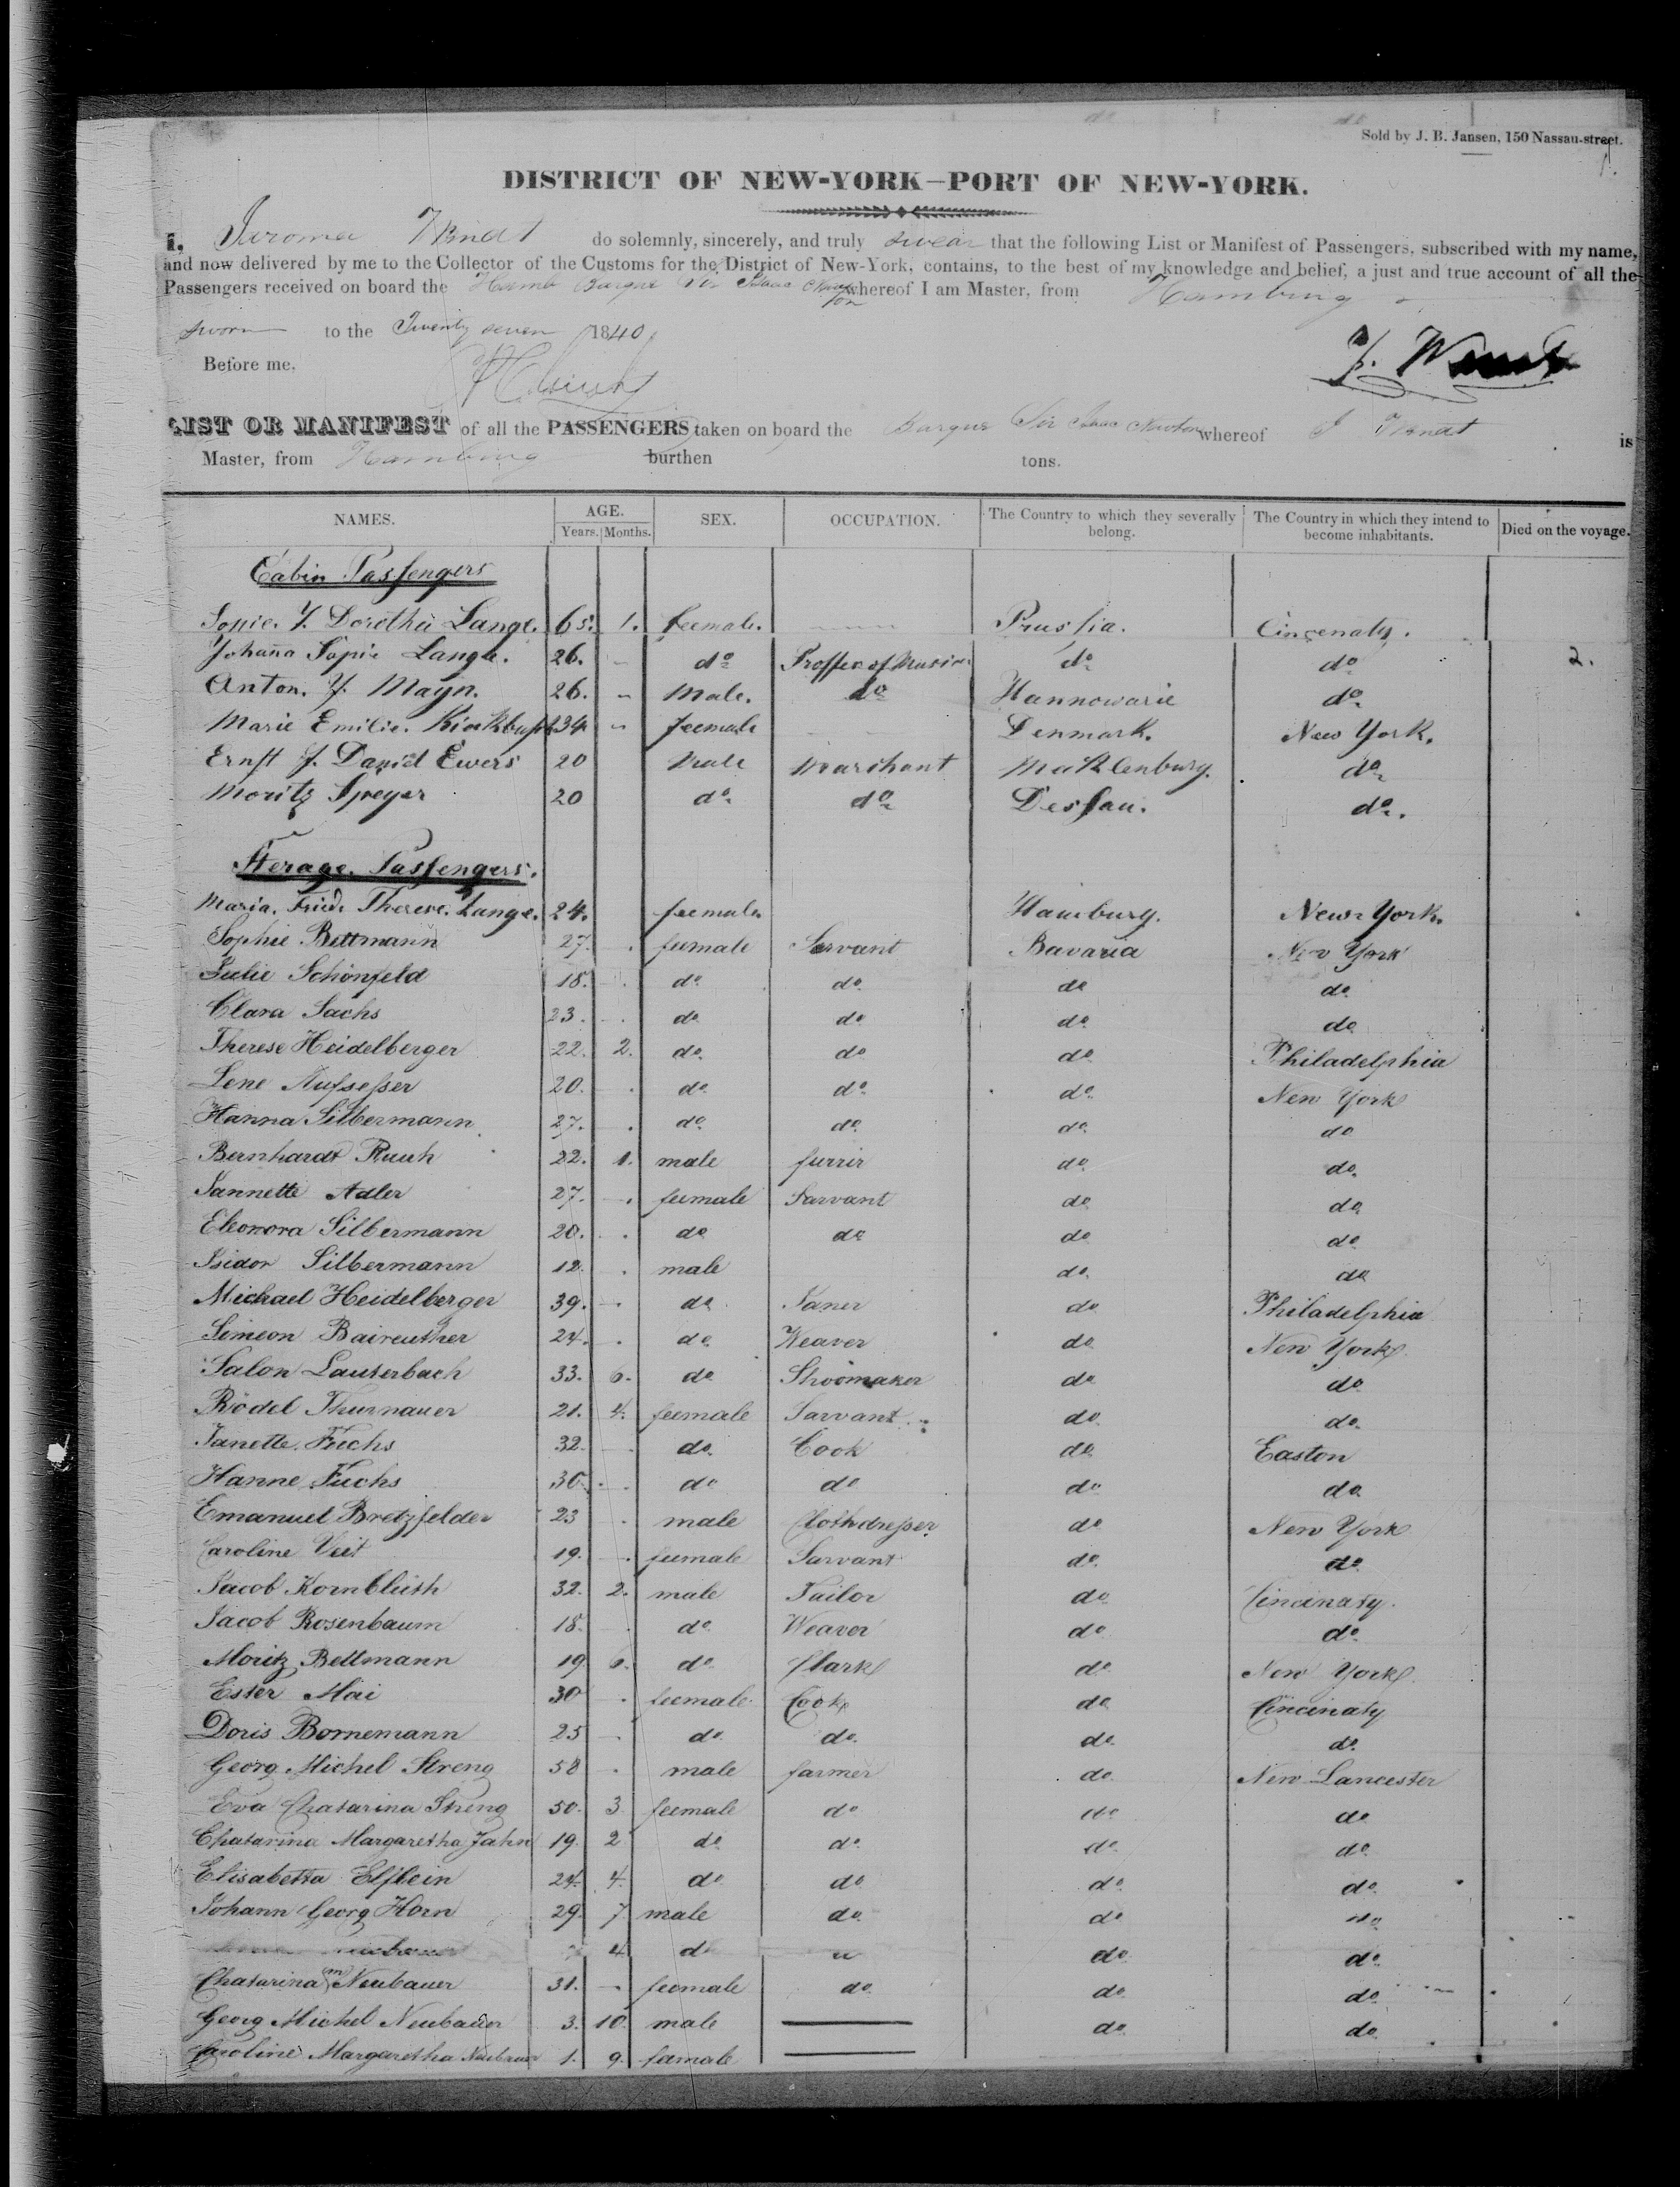 Sold by J. B. Jansen, 150 Nassau-street.
DISTRICT OF NEW-YORK—PORT OF NEW-YORK.
I, do solemnly, sincerely, and truly swear that the following List or Manifest of Passengers, subscribed with my name,
and now delivered by me to the Collector of the Customs for the District of New-York, contains, to the best of my knowledge and belief, a just and true account of all the
Passengers received on board the Hamb Barque Sir Isaac Newton whereof I am Master, from Hamburg
sworn to the Twenty seven 1840
Before me,
LIST OR MANIFEST of all the PASSENGERS taken on board the Barque Sir Isaac Newton whereof is
Master, from Hamburg burthen tons.
NAMES. AGE. Years. Months. SEX. OCCUPATION. The Country to which they severally belong. The Country in which they intend to become inhabitants. Died on the voyage.
Cabin Passengers
Sopie. J. Dorothie Lange. 65. 1. feemale. Prussia. Cincenaty.
Johaña Sopie Lange. 26. do Proffer of Musice do do 2.
Anton. J. Mayn. 26. Male. do Hannowarie do
Marie Emilie. 34 feemale Denmark. New York.
Ernst J. Daniel Ewers 20 Male Marchant Maklenburg. do
Moritz Speyer 20 do do Dessau. do.
Sterage. Passengers.
Maria. Fried. Therese. Lange. 24. feemale Hamburg. New York.
Sophie Bettmann 27. feemale Servant Bavaria New York
Julie Schönfeld 18. do. do. do do.
Clara Sachs 23. do do do. do
Therese Heidelberger 22. 2. do. do do. Philadelphia
Lene Aufsesser 20. do. do. do. New York
Hanna Silbermann 27. do. do. do. do
Bernhardt 22. 1. male furrir do. do.
Jannette Adler 27. feemale Sarvant do do
Eleonora Silbermann 20. do do do do.
Isidor Silbermann 12. male do. do
Michael Heidelberger 39. do do Philadelphia
Simeon Baireuther 24. do. Weaver do New York.
Salon Lauterbach 33. 6. do Shoomaker do do
Rödel Thurnauer 21. 4. feemale Sarvant do. do.
Janette. Fuchs 32. do. Cook do Easton
Hanne Fuchs 30. do do do do.
Emanuel Bretzfelder 23 male Clothdresser do New York
Caroline Veit 19. feemale Sarvant do. do
Jacob Kornblüth 32. 2. male Tailor do Cincinaty.
Jacob Rosenbaum 18. do. Weaver do do.
Moritz Bettmann 19 6. do. Clark do. New York
Ester Mai 30 feemale Cook do Cincinaty
Doris Bornemann 25 do. do. do. do.
Georg Michel Streng 58 male farmer do New Lancester
Eva Chatarina Streng 50. 3 feemale do do do
Chatarina Margaretha Jahn 19. 2 do do. do. do
Elisabetha Elflein 24. 4. do do do. do.
Johann Georg Horn 29. 7. male do. do do
4 do do do.
Chatarina (m) Neubauer 31. feemale do. do. do
Georg Michel Neubauer 3. 10. male do. do.
Caroline Margaretha Neubauer 1. 9. famale